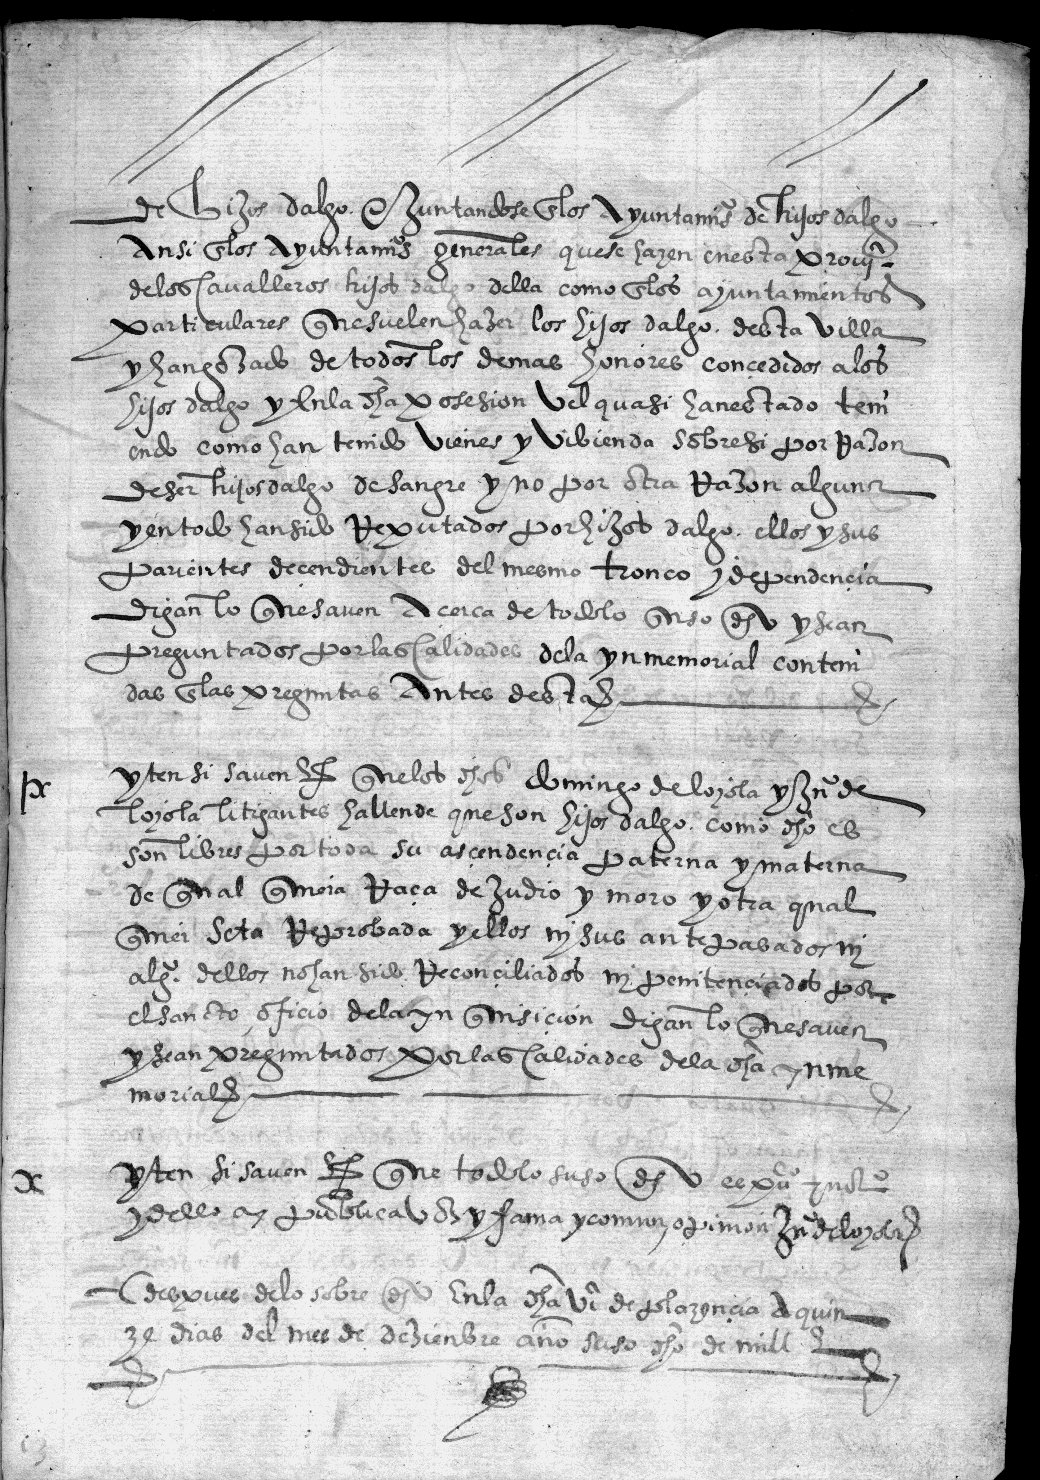 de hizos dalgo e Juntandose en los Ayuntamis de hijos dalgo
Ansi en los Ayuntamis generales que se hazen en esta proui
de los cavalleros hijos dalgo della como en los ayuntamientos
particulares que suelen hazer los hijos dalgo desta villa
y han gozado de todos los demas honores concedidos a los
hijos dalgo y En la dha posesion vel quasi han estado teni
endo como han tenido vienes y vibienda sobre si por Razon
de ser hijos dalgo de sangre y no por otra Razon alguna
y en todo han sido Reputados por hizos dalgo ellos y sus
parientes decendientes del mesmo tronco y dependençia
digan lo que saven Açerca de todo lo que suso dho y sean
preguntados por las calidades de la ynmemorial conteni
das en las preguntas Antes desta
ix yten si saven que los dhos domingo de loyola y Jun de
loyola litigantes hallende que son hijos dalgo como dho es
son libres por toda su asçendençia paterna y materna
de qual quiera Raça de Judio y moro y otra qual
quiei seta Reprobada y ellos nj sus antepasados nj
algo dellos no han sido Reconçiliados nj penitençiados por
el sancto ofiçio de la yn quisiçion digan lo que saven
y sean preguntados por las calidades de la dha ynme
morial
x yten si saven que todo lo suso dho es puco y noto
y dello ay publica voz y fama y comun opinion Jn de loyola
despues de lo sobre dho En la dha vi de plazençia A quin
ze dias del mes de dezienbre año suso dho de mill E